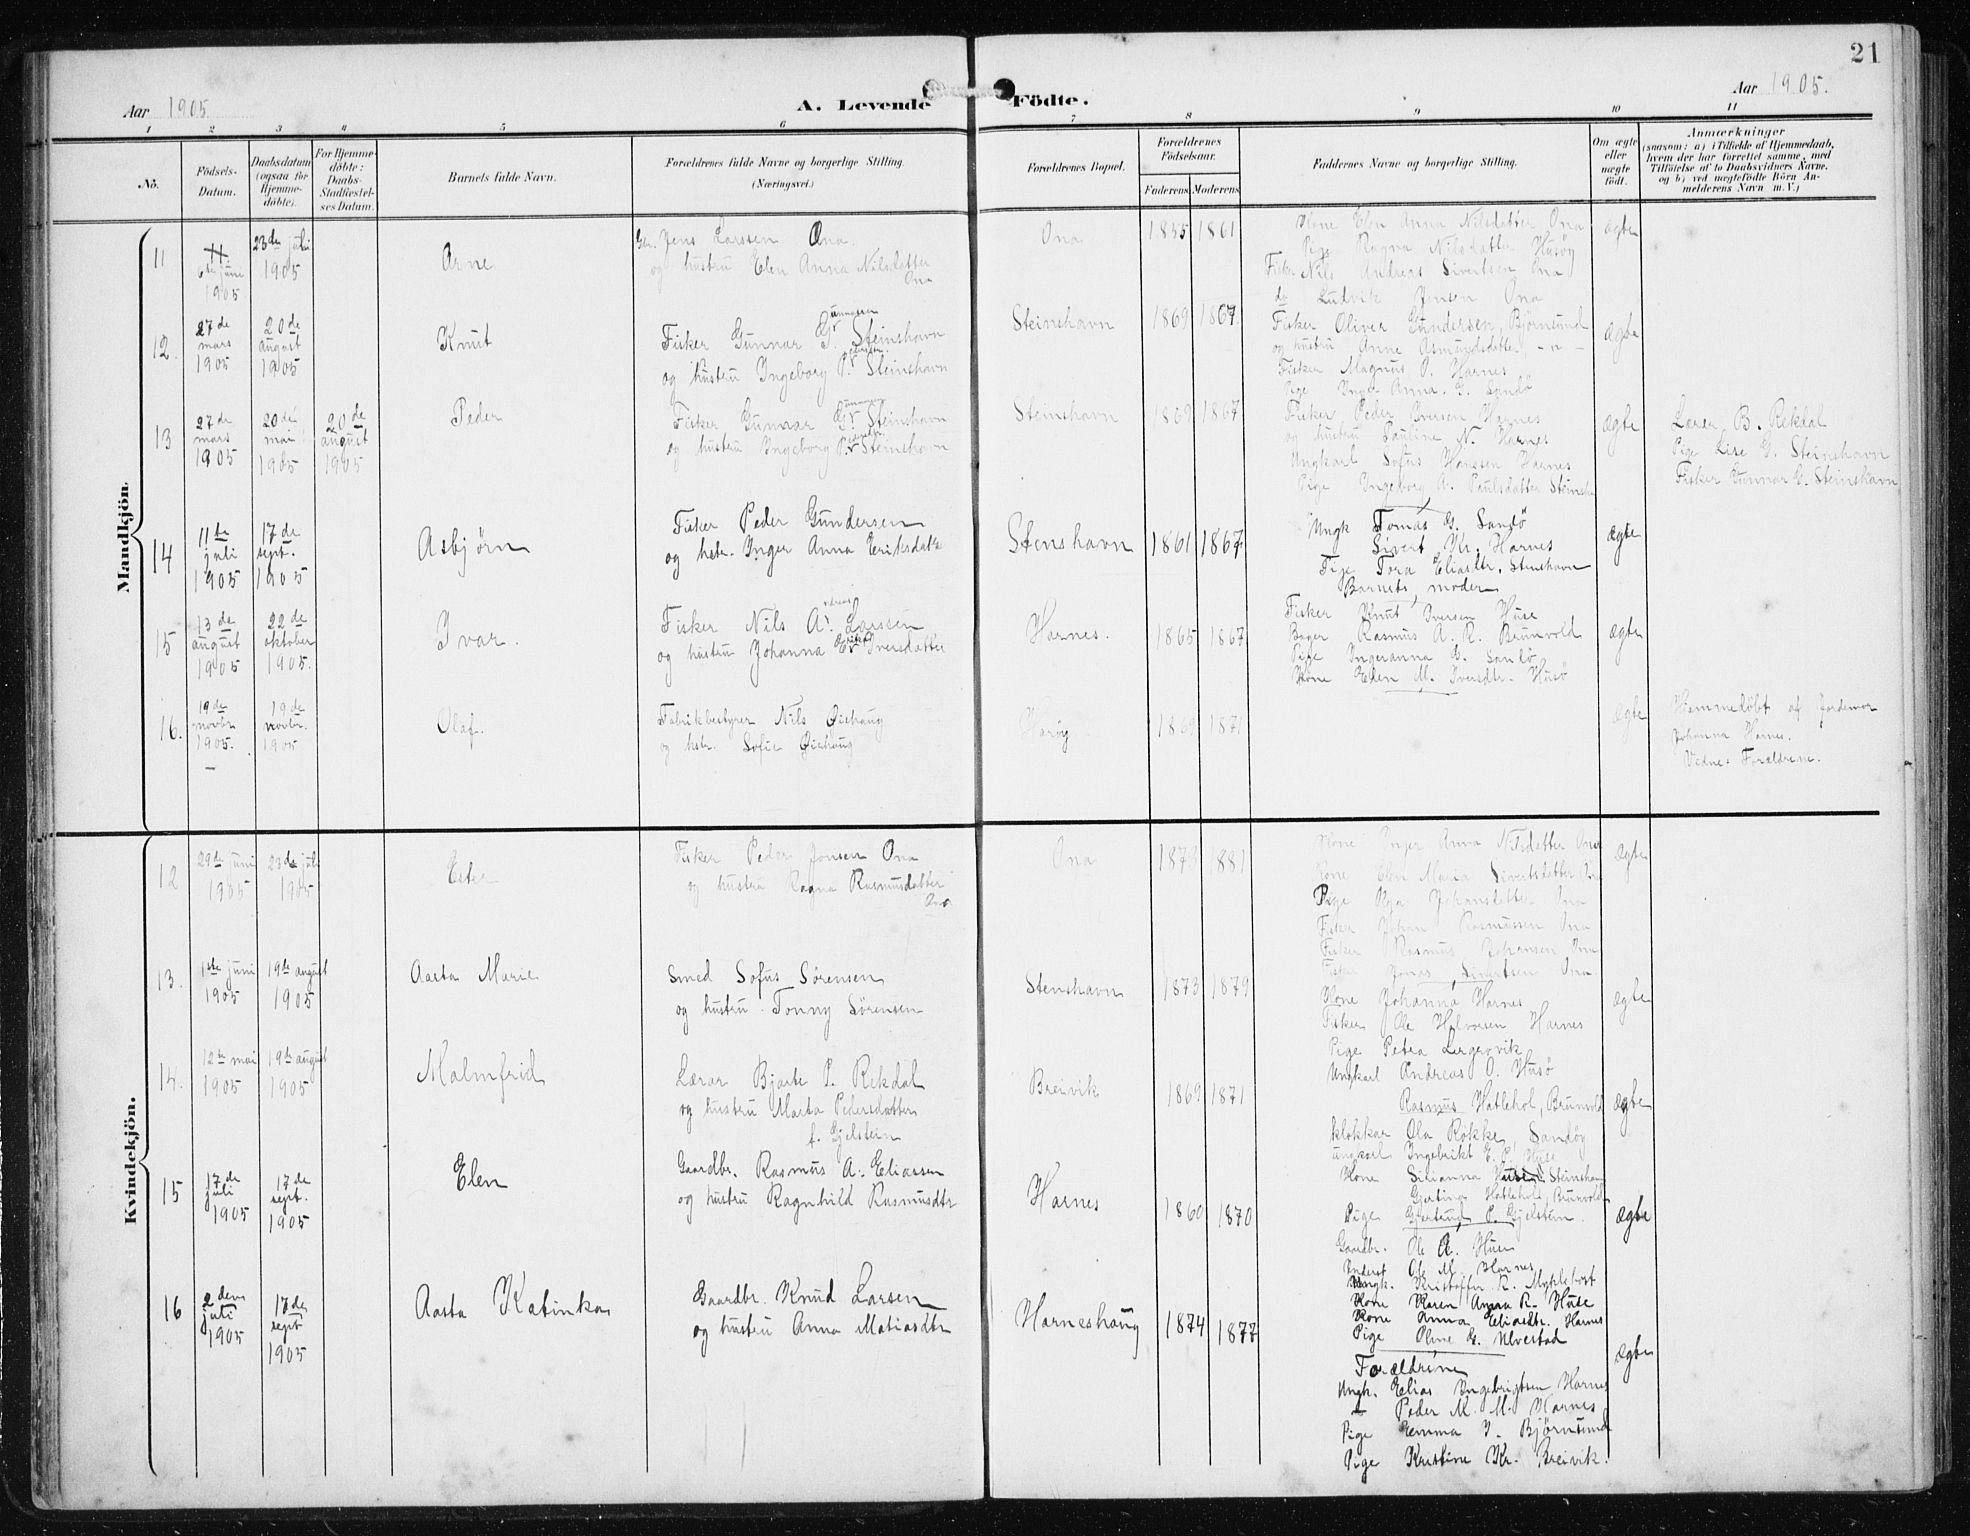 21
Aar 1905
A. Levende Födte.
Aar 1905.
1 2 3 4 5 6 7 8 9 10 11
No.
Födsels-Datum.
Daabsdatum (ogsaa for Hjemme-döbte).
For Hjemme-döbte: Daabs-Stadfæstel-ses Datum.
Barnets fulde Navn.
Forældrenes fulde Navne og borgerlige Stilling.
(Næringsvei.)
Forældrenes Bopæl.
Forældrenes Födselsaar.
Faderens Moderens
Faddernes Navne og borgerlige Stilling.
Om ægte eller uægte födt.
Anmærkninger
(saasom: a) i Tilfælde af Hjemmedaab,
hvem der har forrettet samme, med
Tilföielse af to Daabsvidners Navne.
og b) ved uægtefödte Börn An-
melderens Navn m. V.)
Mandkjön.
11
6te juni 1905
23de juli 1905
Arne
Jens Larssen Ona
og hustru Elen Anna Nilsdatter
Ona
Ona
1855 1861
Kone Elen Anna Nilsdatter Ona
Pige Ragna Nilsdatter Husøy
Fisker Nils Andreas Sivertsen Ona
do Ludvik Jensen Ona
ægte
12.
27de mars 1905
20de august 1905
Knut
Fisker Gunnar G. Steinshavn
og hustru Ingeborg P. Steinshavn
Steinshavn
1869 1867
Fisker Oliver Gundersen, Bjørnsund
og hustru Anne Asmundsdatter, - " -
Fisker Magnus P. Harnes
Pige Inger Anna G. Sandø
ægte
13
27de mars 1905
20de mai 1905
20de august 1905
Peder
Fisker Gunnar G. Steinshavn
og hustru Ingeborg P. Steinshavn
Steinshavn
1869 1867
Fisker Peder Iversen Harnes
og hustru Pauline N. Harnes
Ungkarl Sofus Hanssen Harnes
Pige Ingeborg A. Paulsdatter
ægte
Lærer B. Rekdal
Pige Lise G. Steinshavn
Fisker Gunnar G. Steinshavn
14
11te juli 1905
17de sept. 1905
Asbjørn
Fisker Peder Gundersen
og hstr. Inger Anna Eriksdatter
Stenshavn
1861 1867
Ungk Tomas G. Sandø
Sivert Kr. Harnes
Pige Tora Eliasdtr. Stenshavn
Barnets moder
ægte
15
13de august 1905
22de oktober 1905.
Ivar.
Fisker Nils A. Larssen
og hustru Johanna E. Iversdatter
Harnes.
1865 1867
Fisker Knut Iversen Huse
Bager Rasmus A. R. Brunvold
Pige Ingeranna G. Sandø
Kone Elen M. Iversdtr. Husø
ægte
16.
19de novbr 1905.
19de novbr. 1905
Olaf.
Fabrikbestyrer Nils Øiehaug
og hstr. Sofie Øiehaug
Harøy
1869 1871
ægte
Hjemmedøbt af Jordemor
Johanna Harnes.
Vidne: Forældrene.
Kvindekjön.
12
29de juni 1905
23de juli 1905
Ester
Fisker Peder Jonsen Ona
og hustru Ragna Rasmusdatter
Ona
Ona
1873 1881
Kone Inger Anna Nilsdatter Ona
Kone Elen Maria Sivertsdatter Ona
Pige Johansdatter Ona
Fisker Johan Rasmussen Ona
Fisker Rasmus Johansen Ona
Fisker Jonas Sivertsen Ona
ægte
13.
1ste juni 1905
19de august 1905
Aasta Marie
Smed Sofus Sørensen
og hustru Tonny Sørensen
Stenshavn
1873 1879
Kone Johanna Harnes
Fisker Ole Halvorsen Harnes
Pige Petra Lergrovik
Ungkarl Andreas O. Husø
ægte
14.
12te mai 1905
19de august 1905
Malmfrid
Lærar Bjarte P. Rekdal
og hustru Marta Pedersdatter
f. Gjelstein
Breivik
1869 1871
Rasmus Hatlehol, Brunvold
klokkar Ola Røkke, Sandøy
ungkarl Ingebrikt E. P. Huse
Kone Silianna Steinshavn
Gjertine Hatlehol, Brunvold
Pige Gjertrud P. Gjelstein.
ægte
15
17de juli 1905
17de sept. 1905
Elen
Gaardbr. Rasmus A. Eliassen
og hustru Ragnhild Rasmusdtr
Harnes
1860 1870
Gaardbr. Ole A. Huse
Inderst Ole M. Harnes
Ungk. Kristoffer R. Myklebost
Kone Karen Anna R. Huse
Kone Anna Eliasdtr. Harnes
Pige Oline E. Ulvestad
ægte
16
2den juli 1905
17de sept 1905
Aasta Katinka
Gaardbr. Knud Larsen
og hustru Anna Matiasdtr
Harneshaug
1874 1877
Forældrene
Ungk. Elias Ingebrigtsen Harnes
— Peder M. M. Harnes
Pige Emma I. Bjørnsund
Pige Kristine Kr. Breivik.
ægte